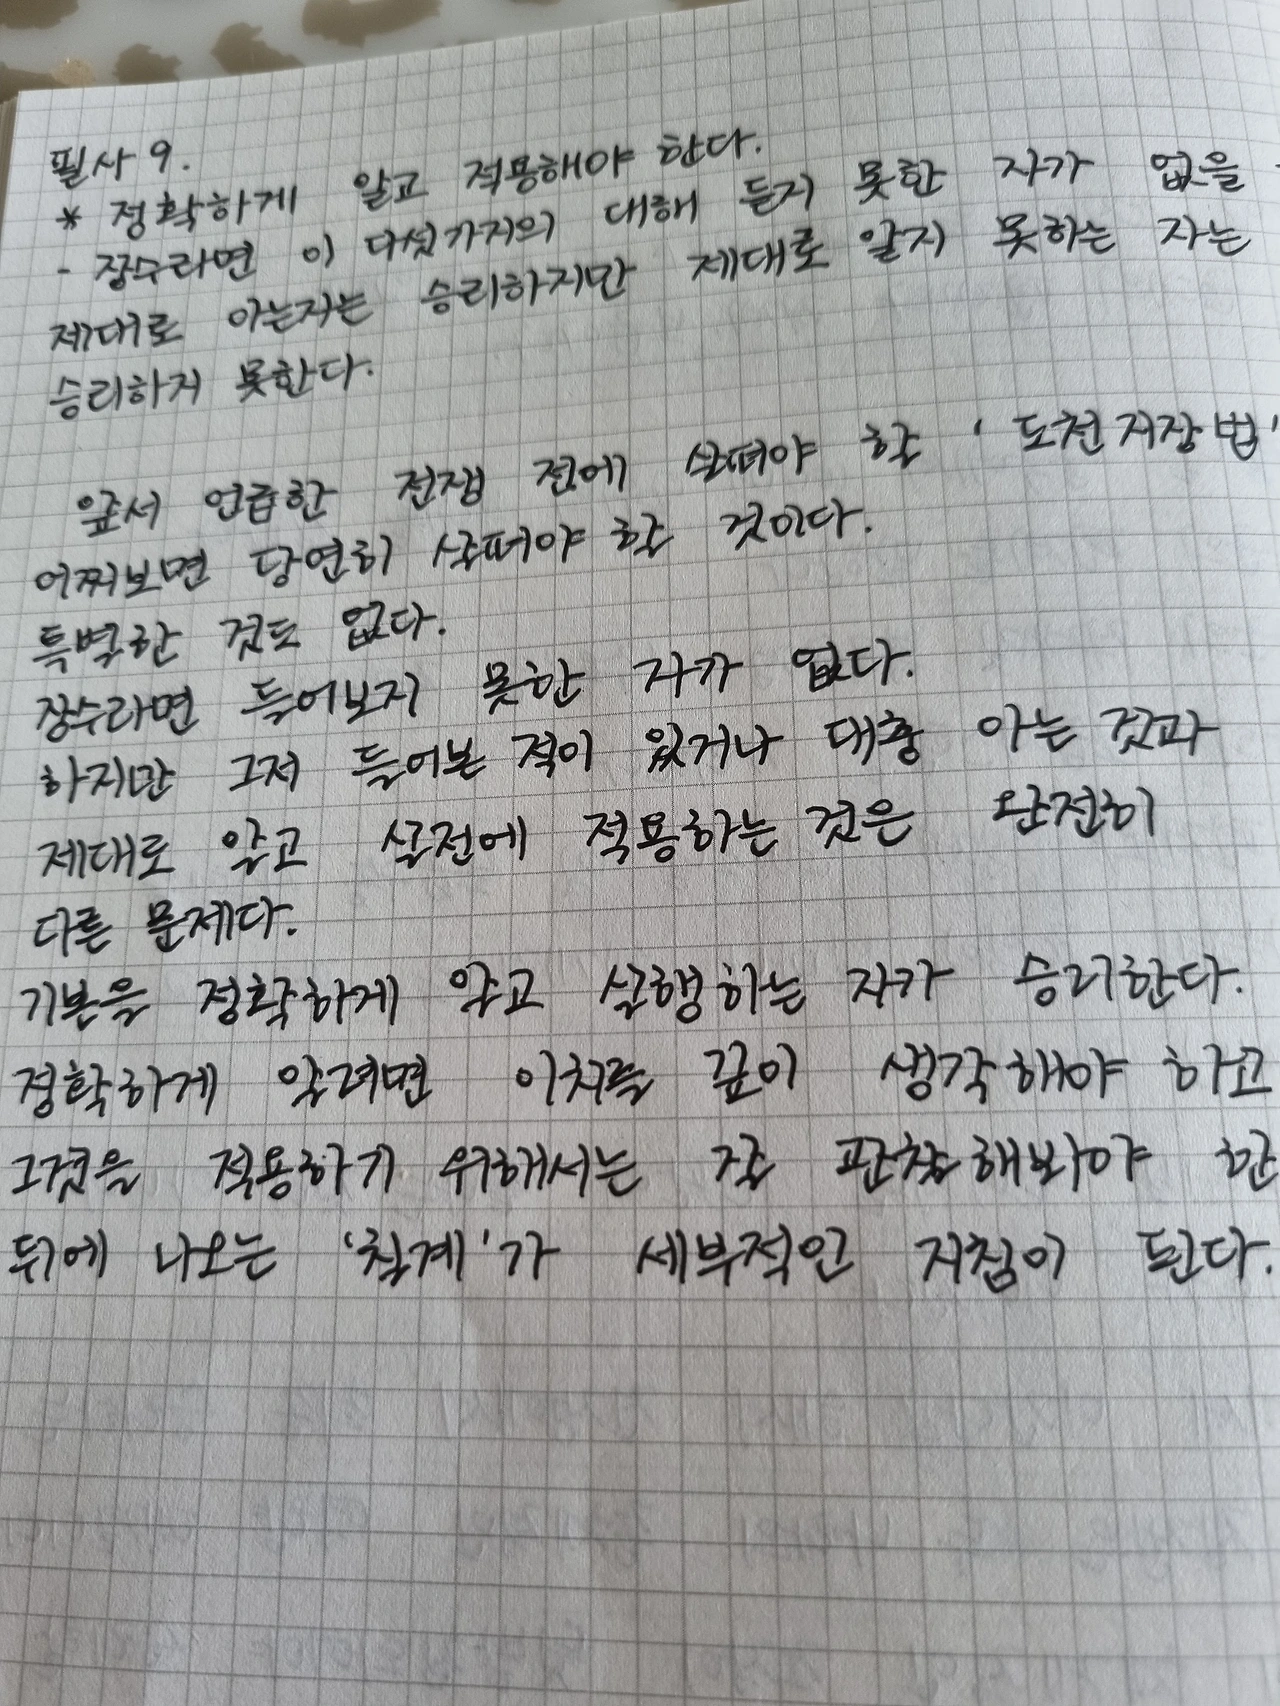 필사 9.
* 정확하게 알고 적용해야 한다.
- 장수라면 이 다섯가지의 대해 듣지 못한 자가 없을
제대로 아는자는 승리하지만 제대로 알지 못하는 자는
승리하지 못한다.
앞서 언급한 전쟁 전에 살펴야 할 '도천지장법'
어찌보면 당연히 살펴야 할 것이다.
특별한 것도 없다.
장수라면 들어보지 못한 자가 없다.
하지만 그저 들어본 적이 있거나 대충 아는 것과
제대로 알고 실전에 적용하는 것은 완전히
다른 문제다.
기본을 정확하게 알고 실행하는 자가 승리한다.
정확하게 알려면 이치를 깊이 생각해야 하고
그것을 적용하기 위해서는 잘 관찰해봐야 한
뒤에 나오는 '칠계'가 세부적인 지침이 된다.